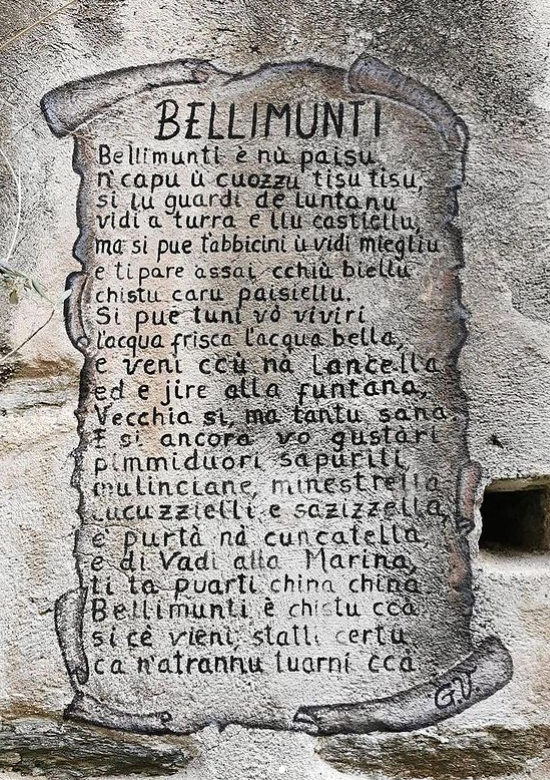 BELLIMUNTI
Bellimunti è nù paisu
n'capu ù cuozzu tisu tisu,
si lu guardi de luntanu
vidi a turra e llu castiellu,
ma si pue t'abbicini ù vidi miegliu
e ti pare assai cchiù biellu
chistu caru paisiellu.
Si pue tuni vò viviri
l'acqua frisca l'acqua bella,
e veni ccù nà lancella
ed e jire alla funtana,
Vecchia si, ma tantu sana.
E si ancora vo gustàri
pimmiduori sapuriti,
mulinciane, minestrella
cucuzzielli e sazizzella,
e' purtà nà cuncatella,
e di Vadi alla Marina,
ti la puarti china china.
Bellimunti è chistu ccà
si cè vieni, statti certu
ca n'atrannu tuarni ccà
G.V.